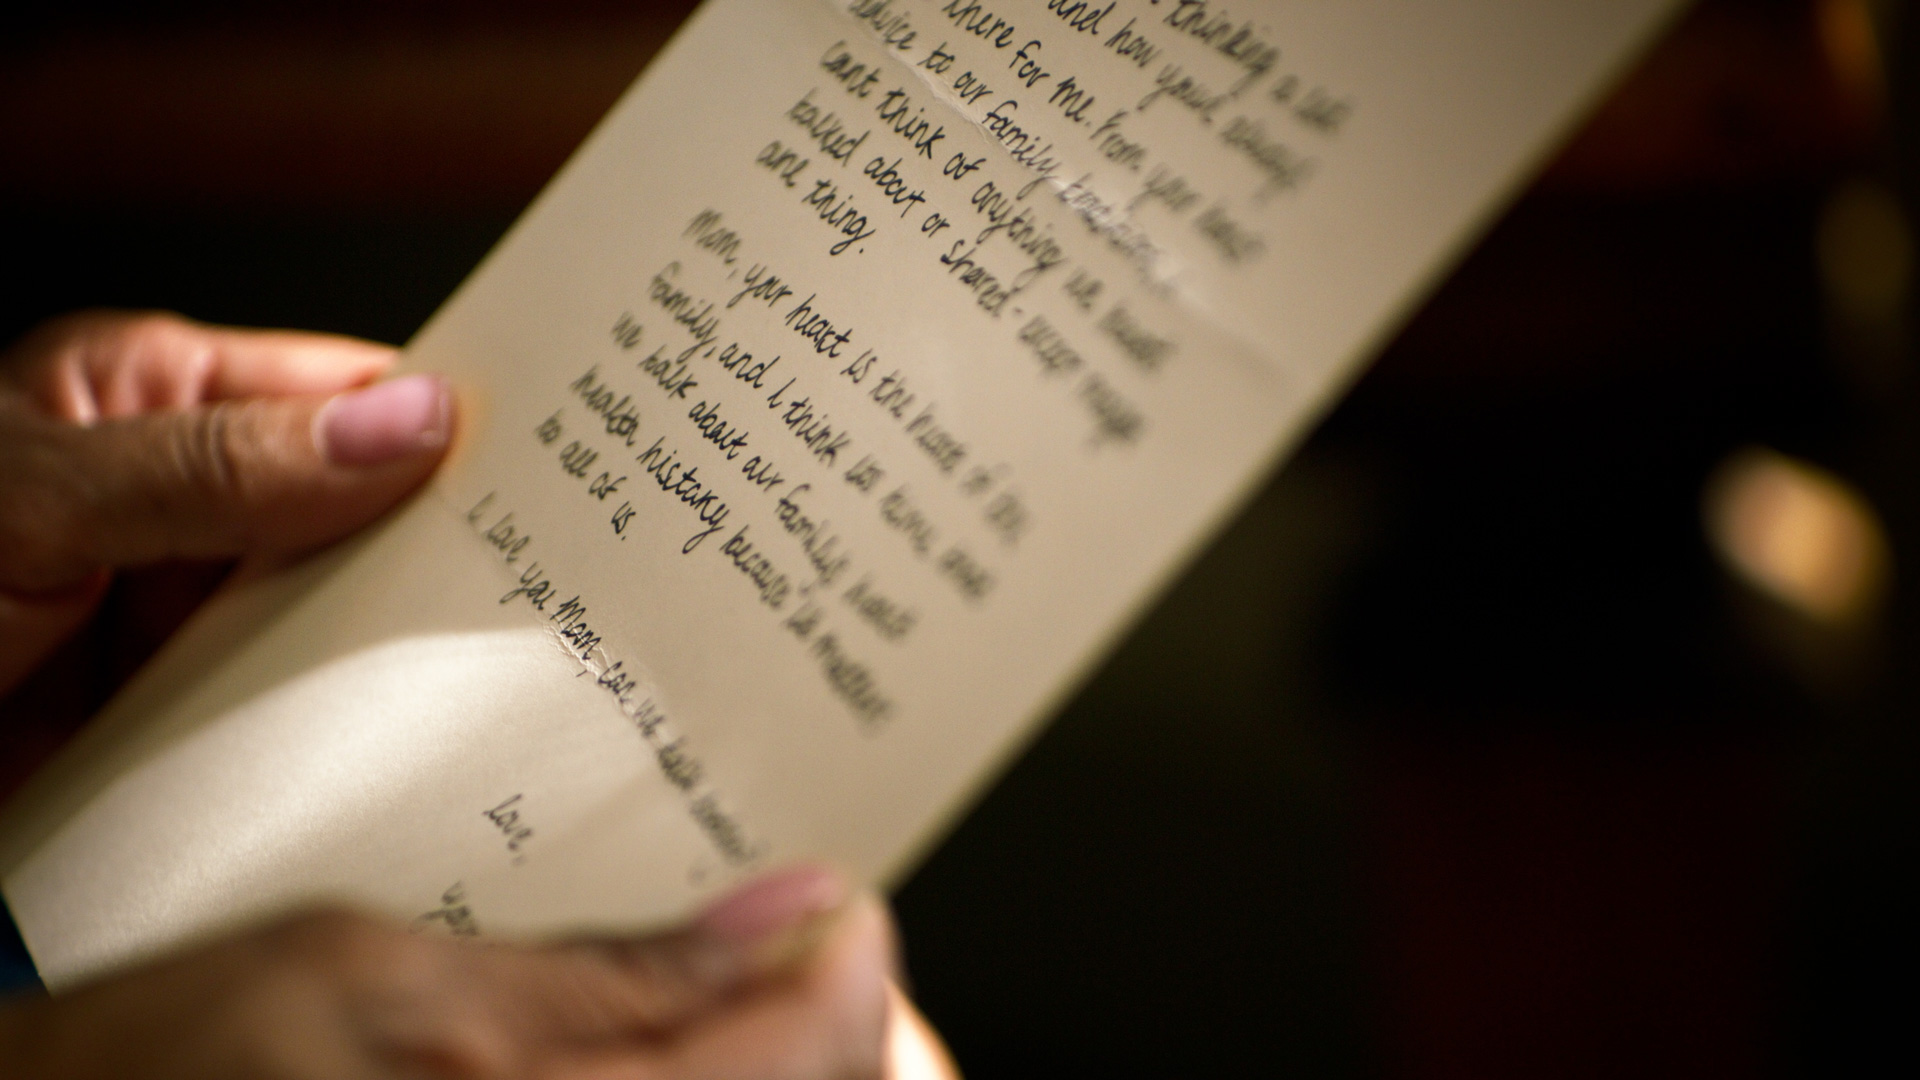 thinking a lot
and how you've always
there for me. From your
advice to our family
can't think of anything we haven't
talked about or shared - except maybe
one thing.
Mom, your heart is the heart of
family, and I think its time
we talk about our family's heart
health history because it matters
to all of us.
I love you Mom, can we talk
love,